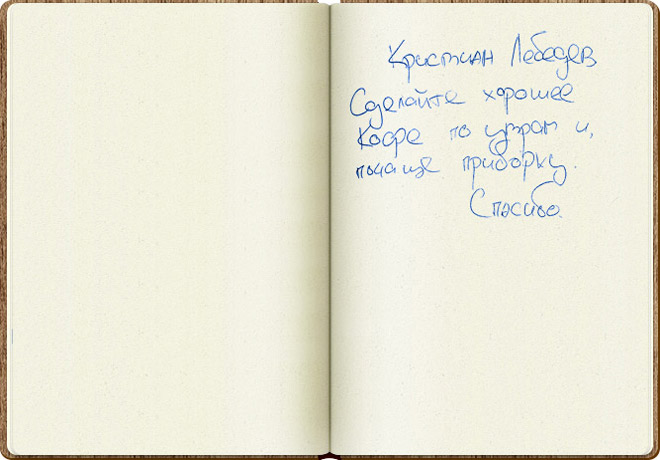 Кристиан Лебедев
Сделайте хорошее
Кофе по утрам и,
почаще приборку.
Спасибо.